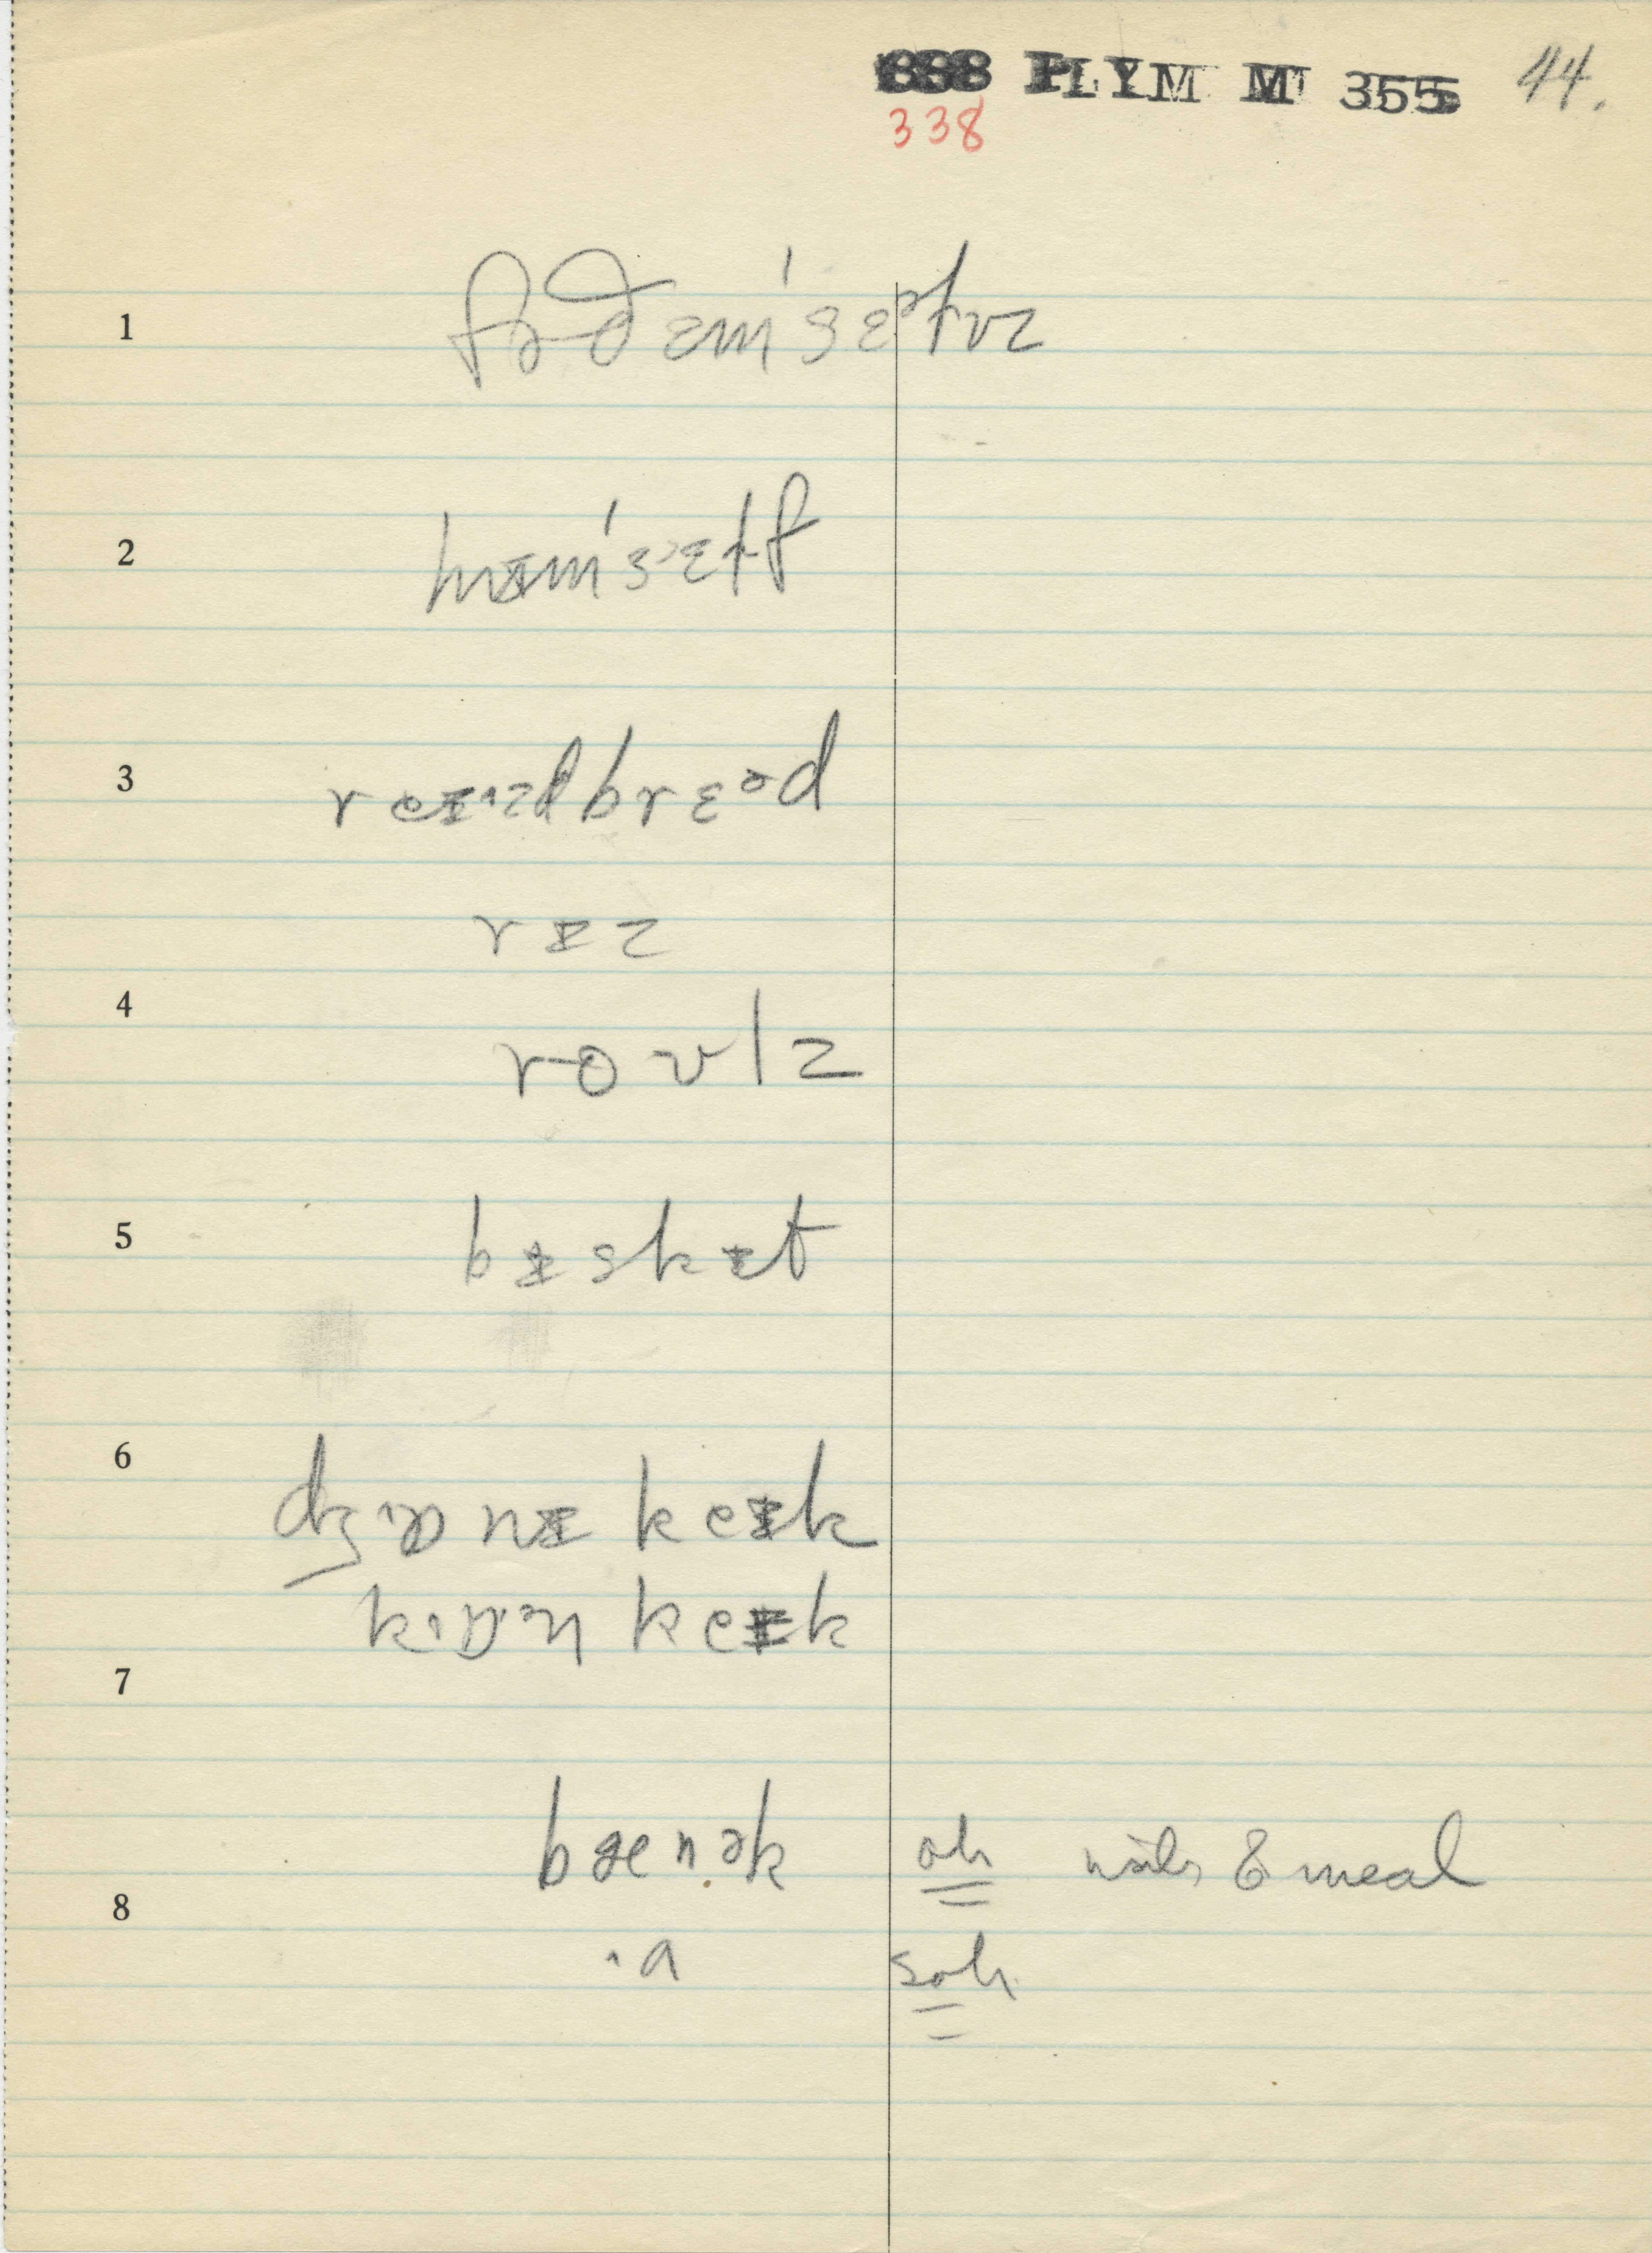 888 PLYM M 355 44.
338
1 fɚðɛm'sɛəlvz
2 hɪm'sɛlf
3 reɪzdbrɛəd
rɪz
4
roʊlz
5 bɪskɪt
6
dʒɒnɪ keɪk
kɒn keɪk
7
bænək oh with E meal
8
ɑ soh